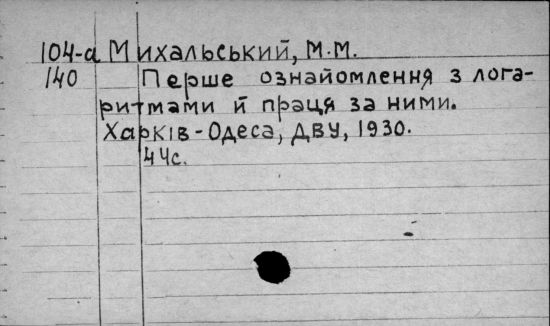 104-а Михальський, М.М.
140 Перше ознайомлення з лога-
ритмами й праця за ними.
Харків-Одеса, ДВУ, 1930.
44с.